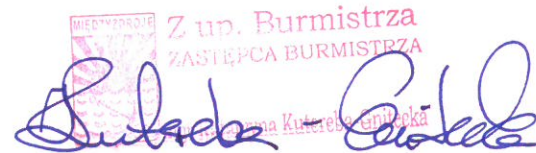 MIĘDZYZDROJE
Z up. Burmistrza
ZASTĘPCA BURMISTRZA
Kutereba-Gnitecka
Kutereba - Gnitecka